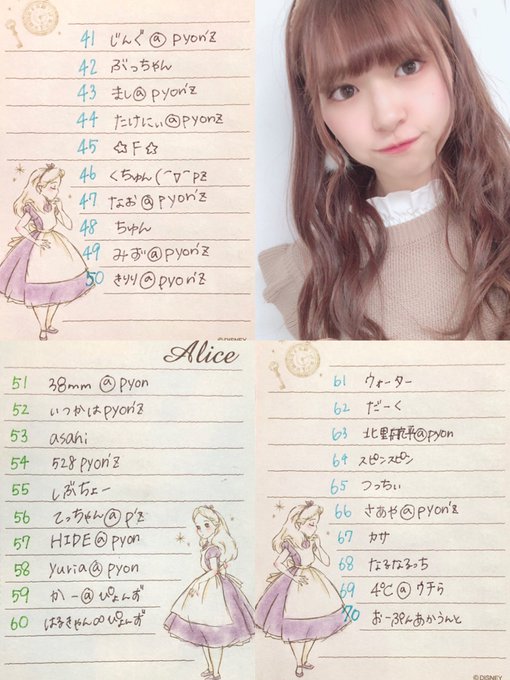 41 じんぐ@pyon'z
42 ぶっちゃん
43 まし@pyon'z
44 たけにぃ@pyonz
45 ☆F☆
46 くちゅん(´∇`pz
47 なお@pyon'z
48 ちゅん
49 みず@pyon'z
50 きりり@pyon'z
©DISNEY
Alice
51 38mm @pyon
52 いつかはpyon'z
53 asahi
54 528pyon'z
55 しぶちょー
56 てっちゃん@p'z
57 HIDE@pyon
58 yuria@pyon
59 かー@ぴょんず
60 はるきゃん∞ぴょんず
61 ウォーター
62 だーく
63 北野 @pyon
64 スピンスピン
65 つっちぃ
66 さあや@pyon'z
67 カサ
68 なるなるっち
69 4℃@ウチら
70 おーぷんあかうんと
©DISNEY